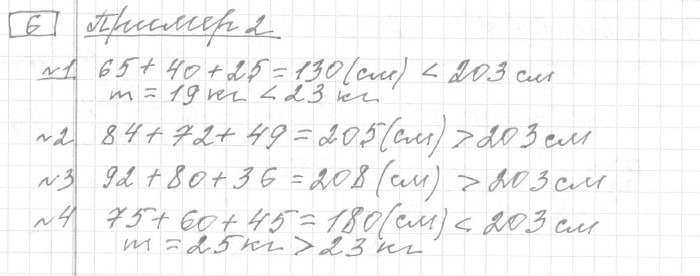 6 Пример 2
№1 65 + 40 + 25 = 130 (см) < 203 см
m = 19 кг < 23 кг
№2 84 + 72 + 49 = 205 (см) > 203 см
№3 92 + 80 + 36 = 208 (см) > 203 см
№4 75 + 60 + 45 = 180 (см) < 203 см
m = 25 кг > 23 кг